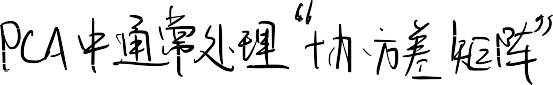 PCA中通常处理“协方差矩阵”